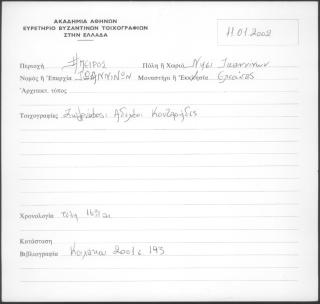 ΑΚΑΔΗΜΙΑ ΑΘΗΝΩΝ
ΕΥΡΕΤΗΡΙΟ ΒΥΖΑΝΤΙΝΩΝ ΤΟΙΧΟΓΡΑΦΙΩΝ
ΣΤΗΝ ΕΛΛΑΔΑ
11.01.2002
Περιοχή ΗΠΕΙΡΟΣ Πόλη ἤ Χωριό Νησί Ιωαννίνων
Νομός ἤ Ἐπαρχία ΙΩΑΝΝΙΝΩΝ Μοναστήρι ἤ Ἐκκλησία Ελεούσας
Ἀρχιτεκτ. τύπος
Τοιχογραφίες Ζωγράφοι: Αδελφοί Κονταρήδες
Χρονολογία τέλη 16ου αι
Κατάσταση
Βιβλιογραφία 2001 193